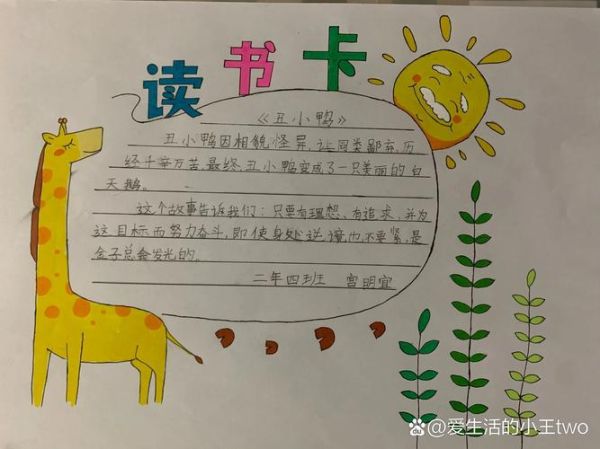 读书卡
《丑小鸭》
丑小鸭因相貌怪异,让同类鄙弃,历
经千辛万苦,最终丑小鸭变成了一只美丽的白
天鹅。
这个故事告诉我们:只要有理想、有追求,并为
这目标而努力奋斗,即使身处逆境也不要紧,是
金子总会发光的。
二年四班 宫明宜
@爱生活的小王two